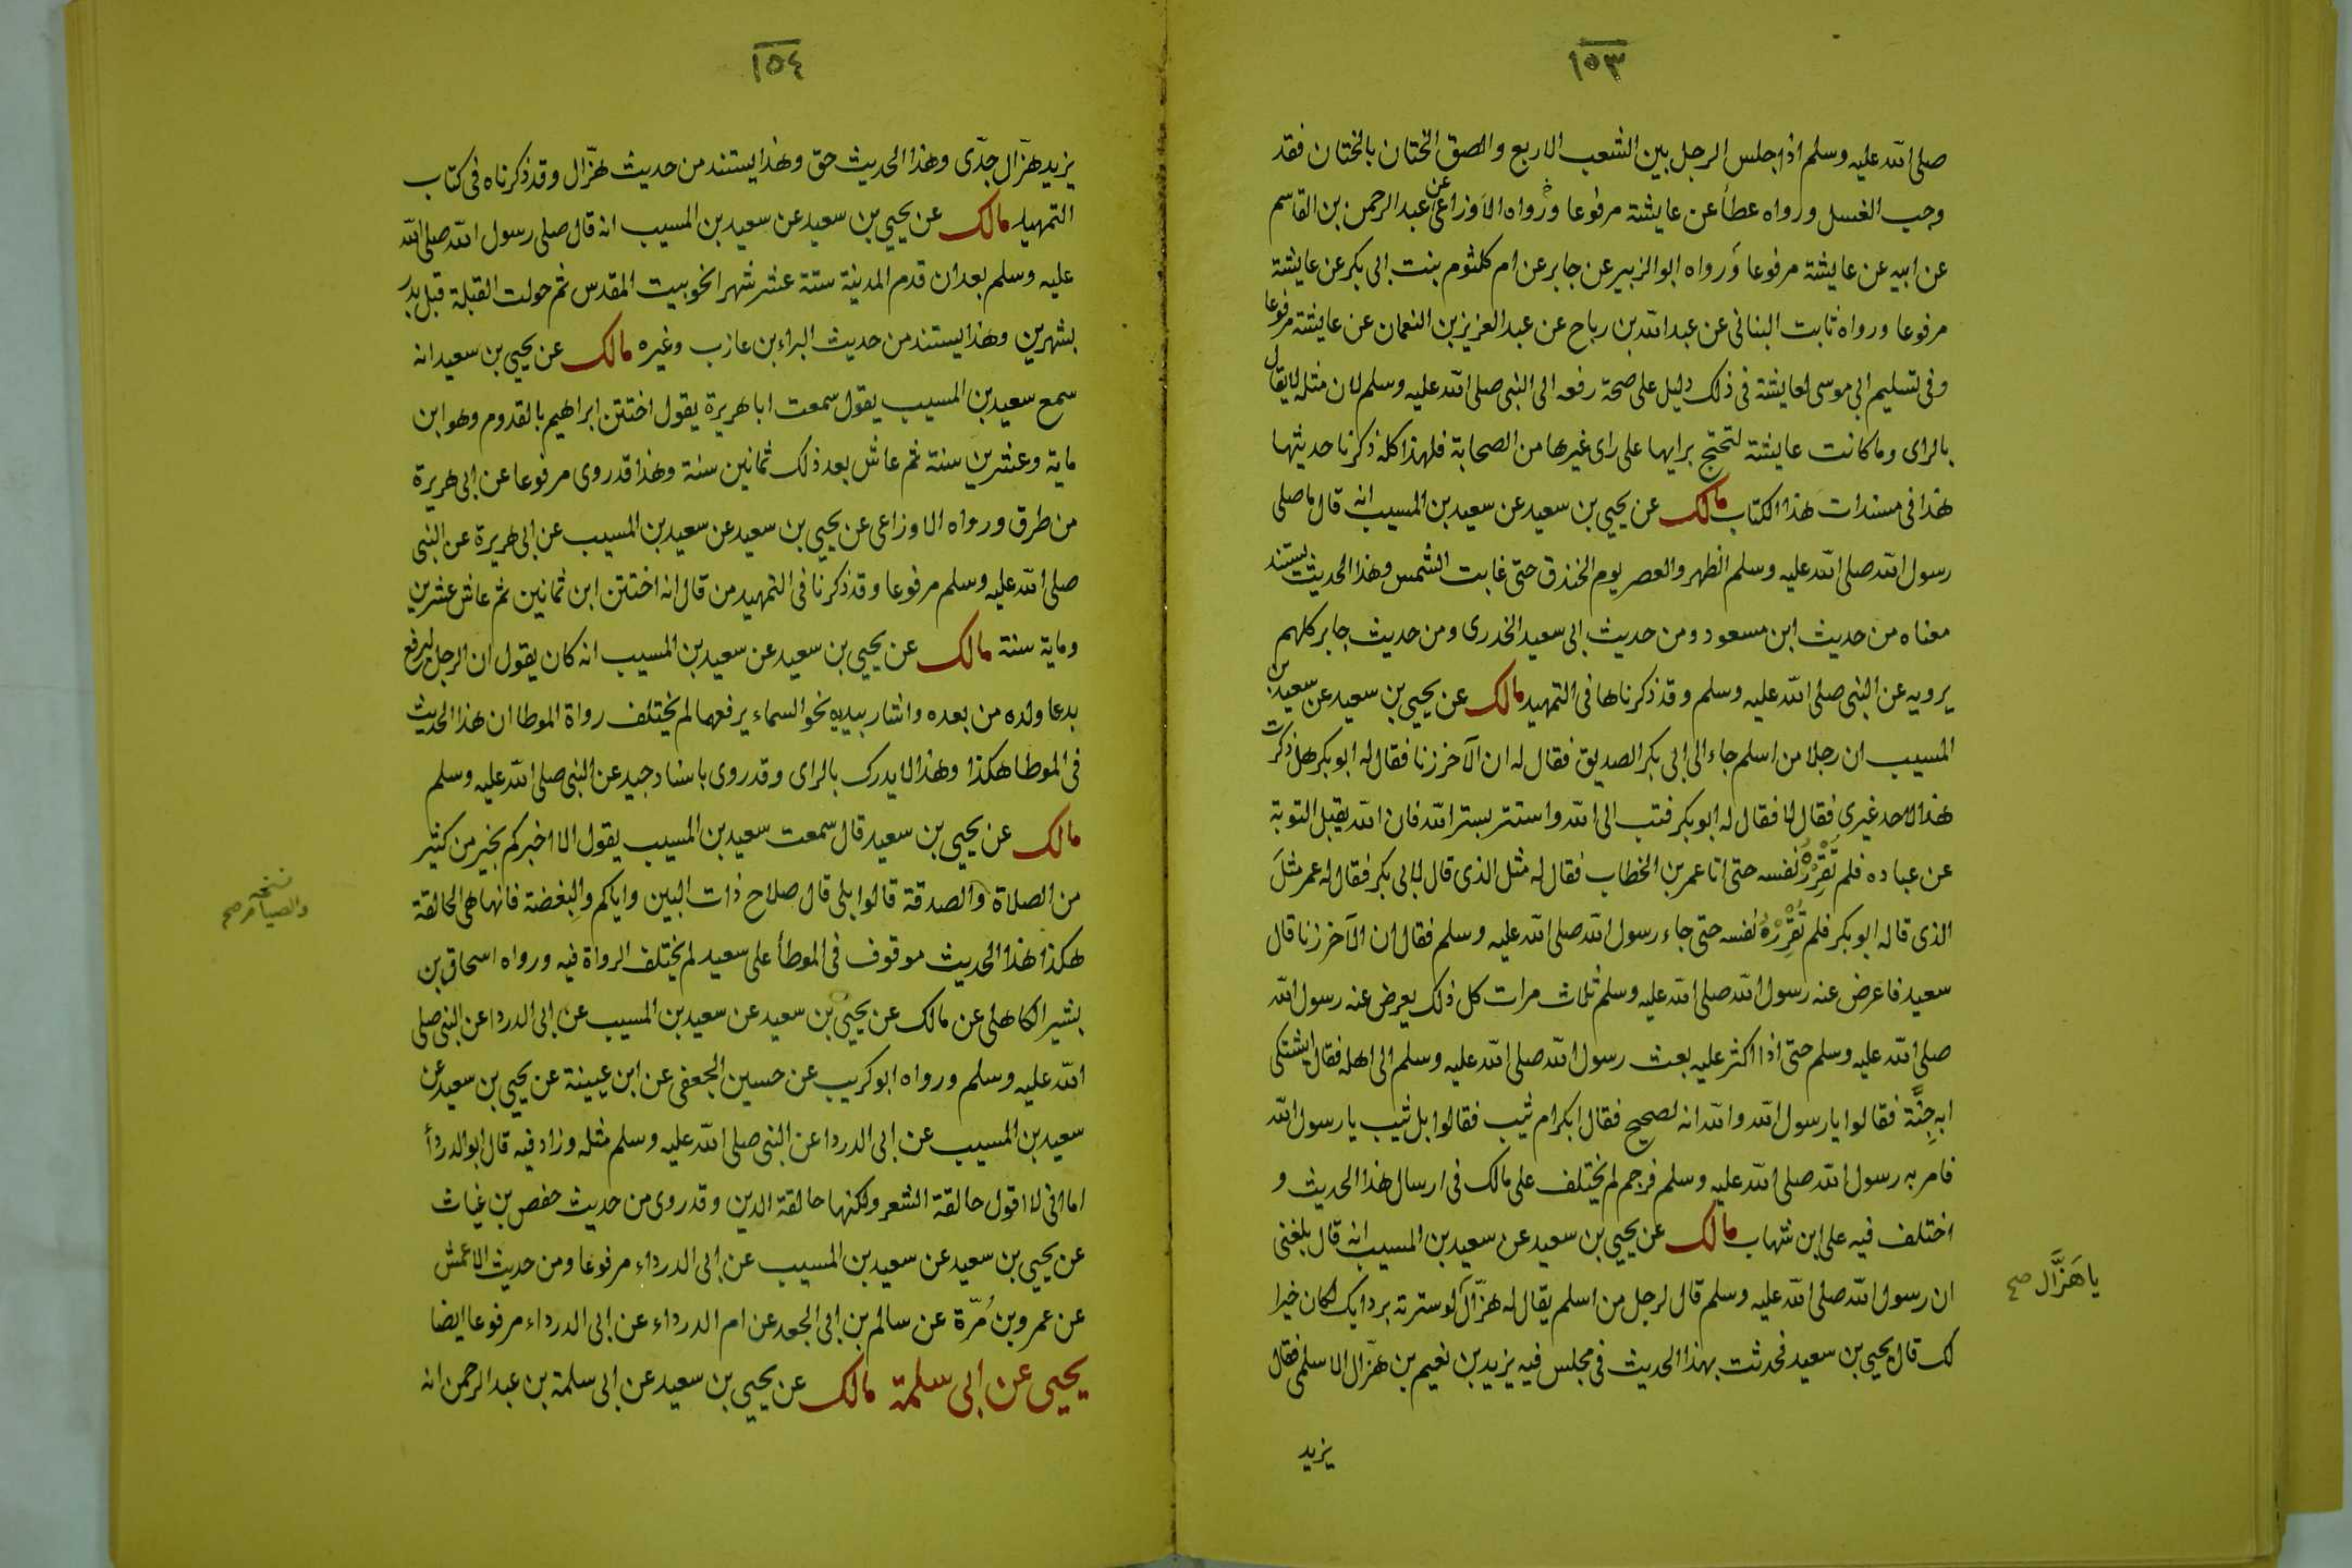 ١٥٣
صلى الله عليه وسلم اذا جلس الرجل بين الشعب الاربع والصق الختان بالختان فقد
وجب الغسل ورواه عطأ عن عايشة مرفوعا ورواه الاوزاعى عن عبد الرحمن بن القاسم
عن ابيه عن عايشة مرفوعا ورواه ابو الزبير عن جابر عن ام كلثوم بنت ابى بكر عن عايشة
مرفوعا ورواه ثابت البنانى عن عبد الله بن رباح عن عبد العزيز بن النعمان عن عايشة مرفوعا
وفى تسليم ابى موسى لعايشة فى ذلك دليل على صحة رفعه الى النبى صلى الله عليه وسلم لان مثله لا يقال
بالراى وما كانت عايشة لتحتج برايها على راى غيرها من الصحابة فلهذا كله ذكرنا حديثها
هذا فى مسندات هذا الكتاب مالك عن يحيى بن سعيد عن سعيد بن المسيب انه قال ما صلى
رسول الله صلى الله عليه وسلم الظهر والعصر يوم الخندق حتى غابت الشمس وهذا الحديث يستند
معناه من حديث ابن مسعود ومن حديث ابى سعيد الخدرى ومن حديث جابر كلهم
يرويه عن النبى صلى الله عليه وسلم وقد ذكرناها فى التمهيد مالك عن يحيى بن سعيد عن سعيد بن
المسيب ان رجلا من اسلم جاء الى ابى بكر الصديق فقال له ان الآخر زنا فقال له ابو بكر هل ذكرت
هذا لاحد غيرى فقال لا فقال له ابو بكر فتب الى الله واستتر بستر الله فان الله يقبل التوبة
عن عباده فلم تُقْرِرْهُ نفسه حتى اتا عمر بن الخطاب فقال له مثل الذى قال لابى بكر فقال له عمر مثلَ
الذى قاله ابو بكر فلم تُقْرِرْهُ نفسه حتى جاء رسول الله صلى الله عليه وسلم فقال ان الآخر زنا قال
سعيد فاعرض عنه رسول الله صلى الله عليه وسلم ثلاث مرات كل ذلك يعرض عنه رسول الله
صلى الله عليه وسلم حتى اذا اكثر عليه بعث رسول الله صلى الله عليه وسلم الى اهله فقال ايشتكى
ابه جِنَّة فقالوا يا رسول الله والله انه لصحيح فقال ابكر ام ثيب فقالوا بل ثيب يا رسول الله
فامر به رسول الله صلى الله عليه وسلم فرجم لم يختلف على مالك فى ارسال هذا الحديث و
اختلف فيه على ابن شهاب مالك عن يحيى بن سعيد عن سعيد بن المسيب انه قال بلغنى
ان رسول الله صلى الله عليه وسلم قال لرجل من اسلم يقال له هزّال لو سترته بردايك لكان خيرا
يا هَزَّال صح
لك قال يحيى بن سعيد فحدثت بهذا الحديث فى مجلس فيه يزيد بن نعيم بن هزّال الاسلمى فقال
يزيد
١٥٤
يزيد هزّال جدّى وهذا الحديث حق وهذا يستند من حديث هزّال وقد ذكرناه فى كتاب
التمهيد مالك عن يحيى بن سعيد عن سعيد بن المسيب انه قال صلى رسول الله صلى الله
عليه وسلم بعد ان قدم المدينة ستة عشر شهرا نحو بيت المقدس ثم حولت القبلة قبل بدر
بشهرين وهذا يستند من حديث البراء بن عازب وغيره مالك عن يحيى بن سعيد انه
سمع سعيد بن المسيب يقول سمعت ابا هريرة يقول اختتن ابراهيم بالقدوم وهو ابن
ماية وعشرين سنة ثم عاش بعد ذلك ثمانين سنة وهذا قد روى مرفوعا عن ابى هريرة
من طرق ورواه الاوزاعى عن يحيى بن سعيد عن سعيد بن المسيب عن ابى هريرة عن النبى
صلى الله عليه وسلم مرفوعا وقد ذكرنا فى التمهيد من قال انه اختتن ابن ثمانين ثم عاش عشرين
وماية سنة مالك عن يحيى بن سعيد عن سعيد بن المسيب انه كان يقول ان الرجل ليرفع
بدعا ولده من بعده واشار بيديه نحو السماء يرفعهما لم يختلف رواة الموطا ان هذا الحديث
فى الموطا هكذا وهذا لا يدرك بالراى وقد روى باسناد جيد عن النبى صلى الله عليه وسلم
مالك عن يحيى بن سعيد قال سمعت سعيد بن المسيب يقول الا اخبركم بخير من كثير
من الصلاة والصدقة قالوا بلى قال صلاح ذات البين واياكم والبغضة فانها هى الحالقة
نسخه
والصيام صح
هكذا هذا الحديث موقوف فى الموطأ على سعيد لم يختلف الرواة فيه ورواه اسحاق بن
بشير الكاهلى عن مالك عن يحيى بن سعيد عن سعيد بن المسيب عن ابى الدردا عن النبى صلى
الله عليه وسلم ورواه ابو كريب عن حسين الجعفى عن ابن عيينة عن يحيى بن سعيد عن
سعيد بن المسيب عن ابى الدردا عن النبى صلى الله عليه وسلم مثله وزاد فيه قال ابو الدردأ
اما انى لا اقول حالقة الشعر ولكنها حالقة الدين وقد روى من حديث حفص بن غياث
عن يحيى بن سعيد عن سعيد بن المسيب عن ابى الدرداء مرفوعا ومن حديث الاعمش
عن عمرو بن مُرّة عن سالم بن ابى الجعد عن ام الدرداء عن ابى الدرداء مرفوعا ايضا
يحيى عن ابى سلمة مالك عن يحيى بن سعيد عن ابى سلمة بن عبد الرحمن انه